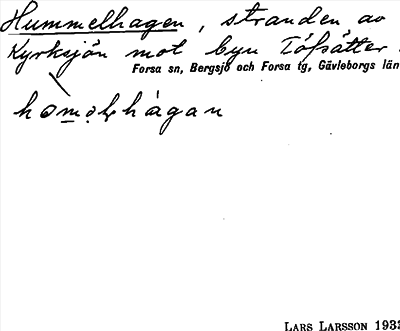 Hummelhagen, stranden av
Kyrksjön mot byn Töfsätter.
Forsa sn, Bergsjö och Forsa tg, Gävleborgs län
LARS LARSSON 1933